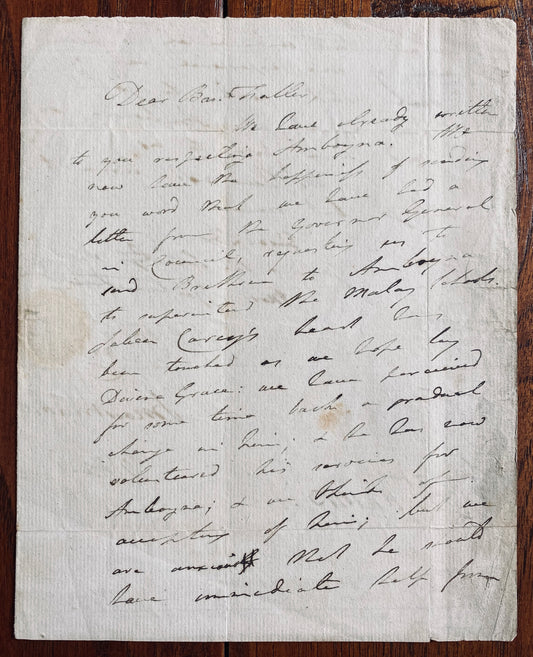 Dear Bro. Fuller,
We have already written
to you respecting Amboyna. We
now have the happiness of sending
you word that we have had a
letter from the Governor General
in Council, requesting us to
send Brethren to Amboyna
to superintend the Malay Schools.
Jabez Carey's heart has
been touched as we hope by
Divine Grace: we have perceived
for some time back a gradual
change in him; & he has now
volunteered his services for
Amboyna; & we think of
accepting of him; but we
are anxious that he should
have immediate help from